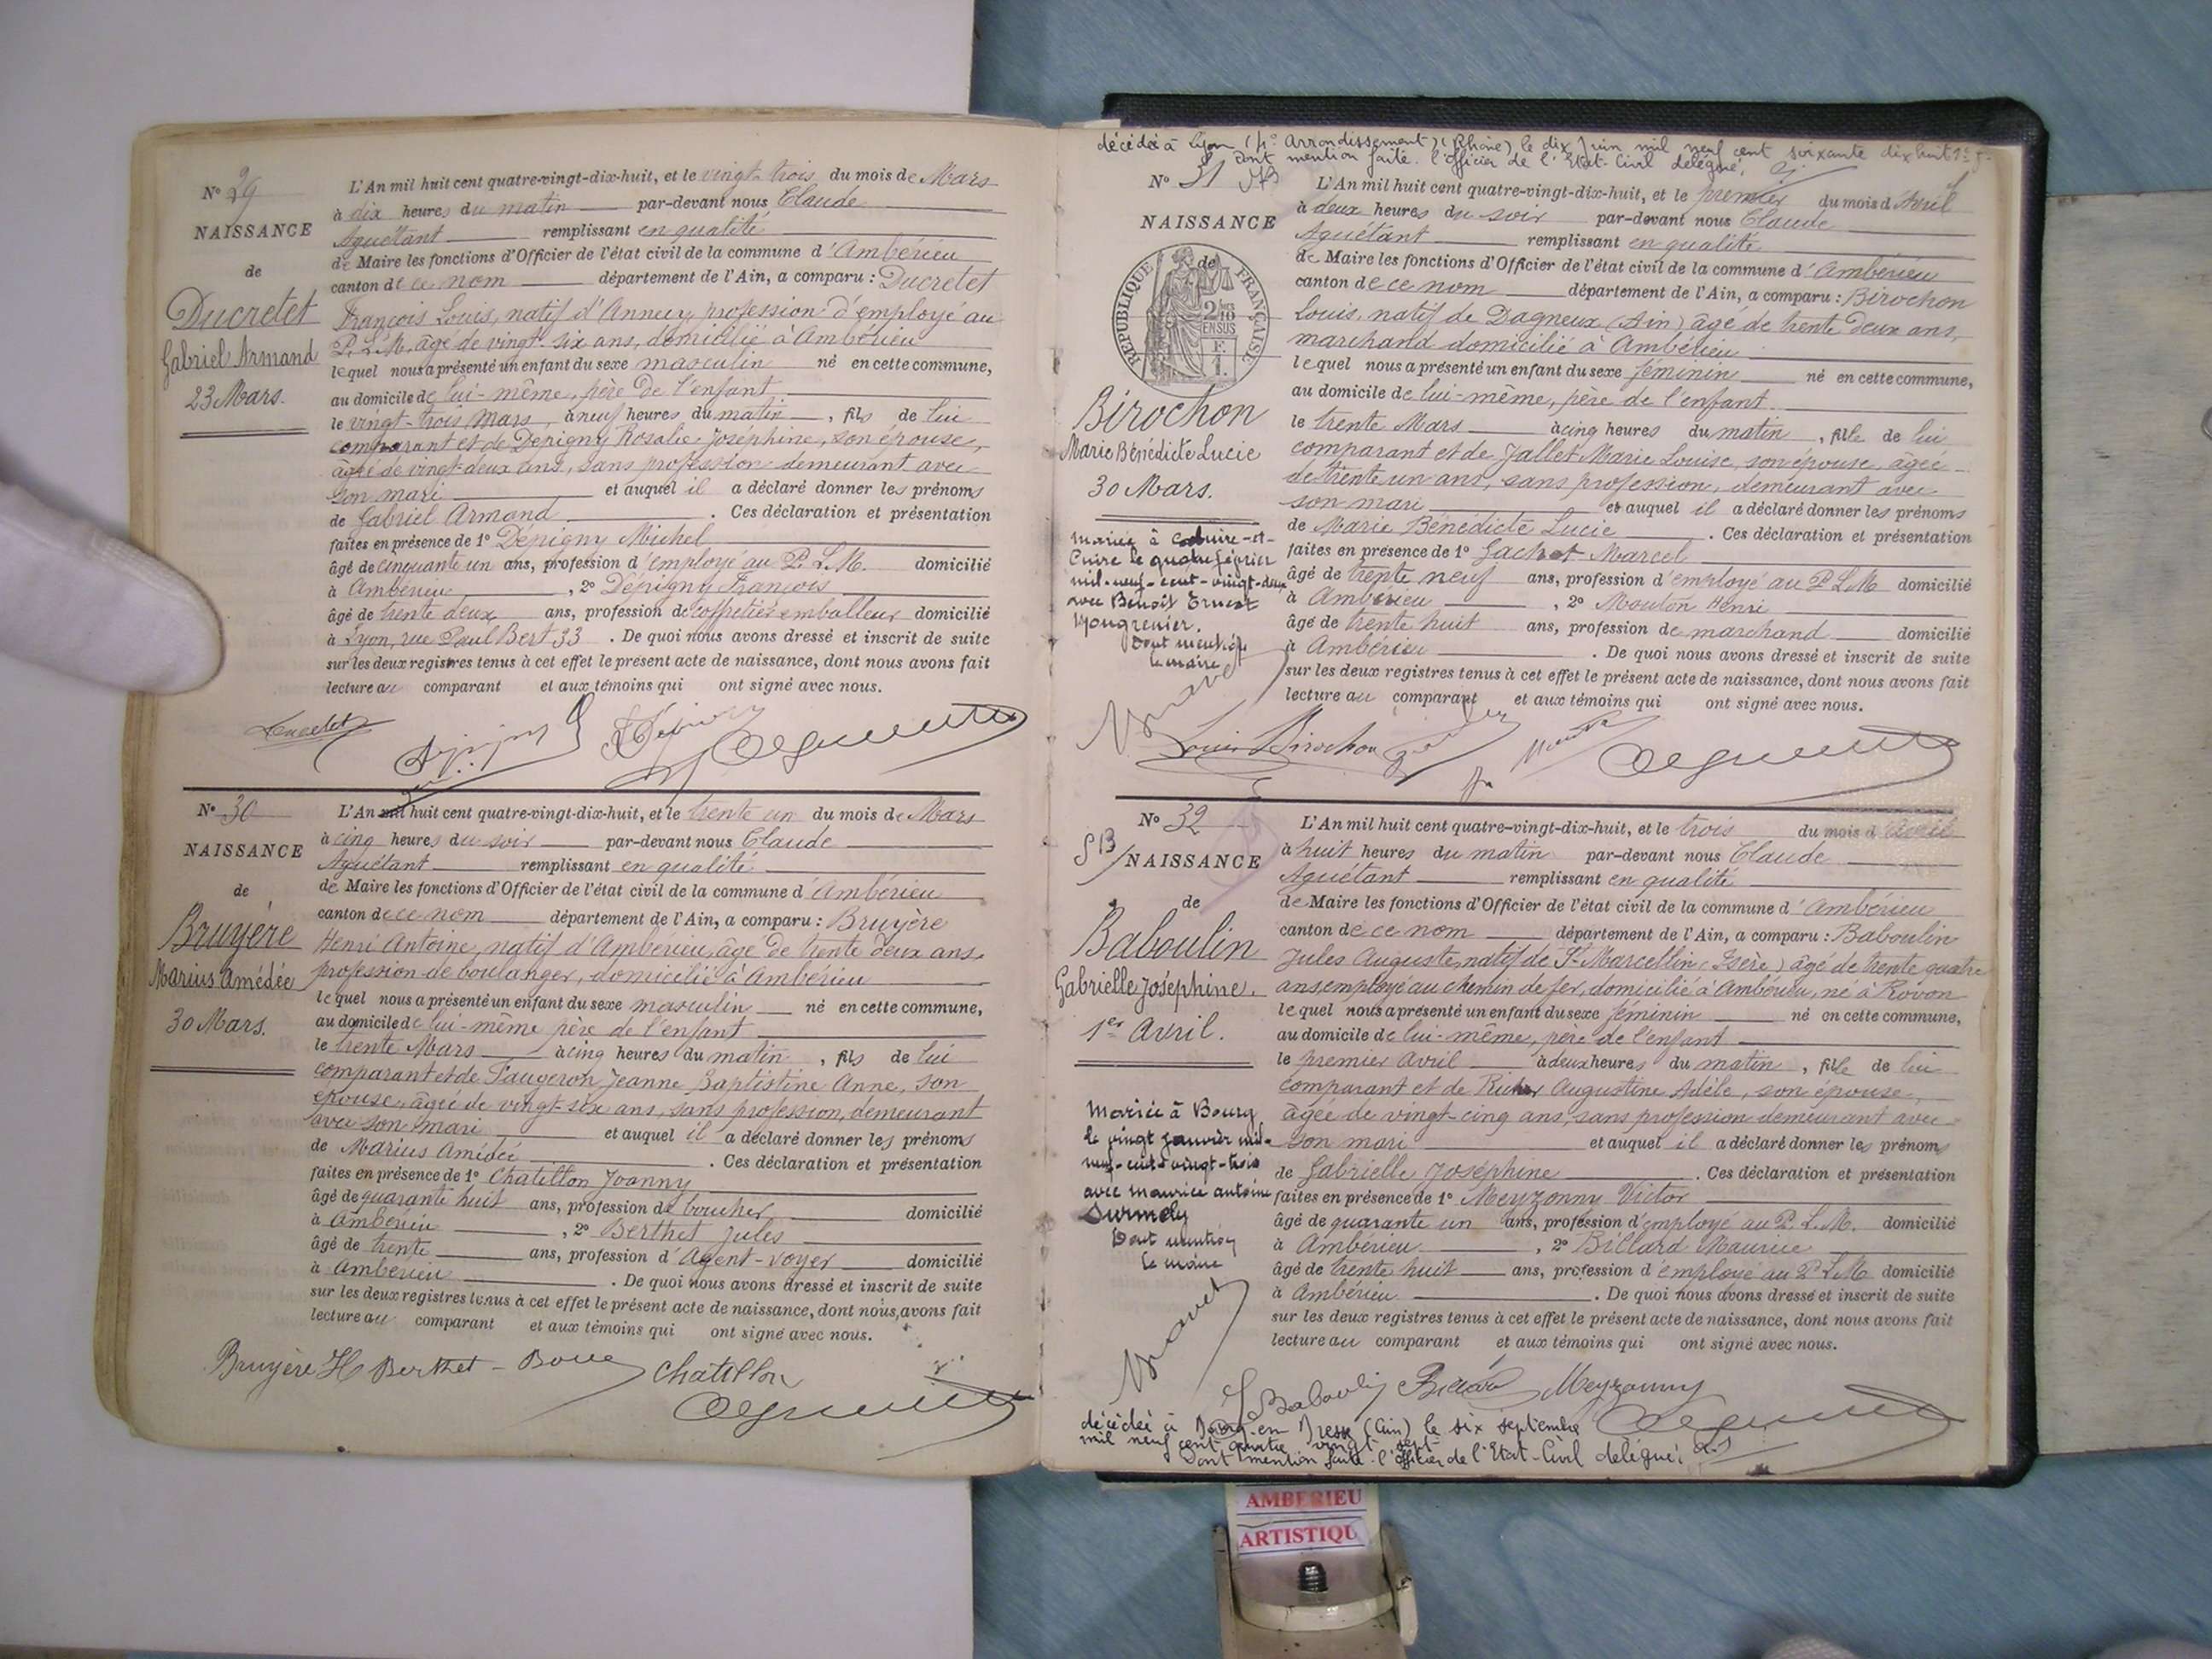 N° 29
NAISSANCE
de
Ducretet
Gabriel Armand
23 Mars.
L'An mil huit cent quatre-vingt-dix-huit, et le vingt-trois du mois de Mars
à dix heures du matin par-devant nous Claude
Aguétant remplissant en qualité
de Maire les fonctions d'Officier de l'état civil de la commune d'Ambérieu
canton de ce nom département de l'Ain, a comparu : Ducretet
François Louis, natif d'Annecy, profession d'employé au
P.L.M, âgé de vingt-six ans, domicilié à Ambérieu
lequel nous a présenté un enfant du sexe masculin né en cette commune,
au domicile de lui-même, père de l'enfant
le vingt-trois Mars, à neuf heures du matin, fils de lui
comparant et de Dépigny Rosalie Joséphine, son épouse,
âgée de vingt-deux ans, sans profession demeurant avec
son mari et auquel il a déclaré donner les prénoms
de Gabriel Armand. Ces déclaration et présentation
faites en présence de 1° Dépigny Michel
âgé de cinquante un ans, profession d'employé au P.L.M. domicilié
à Ambérieu, 2° Dépigny François
âgé de trente deux ans, profession de coffretier emballeur domicilié
à Lyon, rue Paul Bert 33. De quoi nous avons dressé et inscrit de suite
sur les deux registres tenus à cet effet le présent acte de naissance, dont nous avons fait
lecture au comparant et aux témoins qui ont signé avec nous.
Ducretet
N° 30
NAISSANCE
de
Bruyère
Marius Amédée
30 Mars.
L'An mil huit cent quatre-vingt-dix-huit, et le trente un du mois de Mars
à cinq heures du soir par-devant nous Claude
Aguétant remplissant en qualité
de Maire les fonctions d'Officier de l'état civil de la commune d'Ambérieu
canton de ce nom département de l'Ain, a comparu : Bruyère
Henri Antoine, natif d'Ambérieu, âgé de trente deux ans,
profession de boulanger, domicilié à Ambérieu
lequel nous a présenté un enfant du sexe masculin né en cette commune,
au domicile de lui-même père de l'enfant
le trente Mars à cinq heures du matin, fils de lui
comparant et de Faugeron Jeanne Baptistine Anne, son
épouse, âgée de vingt-six ans, sans profession, demeurant
avec son mari et auquel il a déclaré donner les prénoms
de Marius Amédée. Ces déclaration et présentation
faites en présence de 1° Chatillon Joanny
âgé de quarante huit ans, profession de boucher domicilié
à Ambérieu, 2° Berthet Jules
âgé de trente ans, profession d'Agent-voyer domicilié
à Ambérieu. De quoi nous avons dressé et inscrit de suite
sur les deux registres tenus à cet effet le présent acte de naissance, dont nous avons fait
lecture au comparant et aux témoins qui ont signé avec nous.
Bruyère H Berthet Chatillon
décédée à Lyon (4° arrondissement) (Rhône) le dix Juin mil neuf cent soixante dix huit
dont mention faite. l'officier de l'Etat-Civil délégué,
N° 31
NAISSANCE
de
RÉPUBLIQUE FRANÇAISE
2/10 EN SUS
Birochon
Marie Bénédicte Lucie
30 Mars.
Mariée à Caluire-et-
Cuire le quatre février
mil-neuf-cent-vingt-deux
avec Benoît Ernest
Mougrenier.
Dont mention
le maire
L'An mil huit cent quatre-vingt-dix-huit, et le premier du mois d'Avril
à deux heures du soir par-devant nous Claude
Aguétant remplissant en qualité
de Maire les fonctions d'Officier de l'état civil de la commune d'Ambérieu
canton de ce nom département de l'Ain, a comparu : Birochon
Louis, natif de Dagneux (Ain) âgé de trente deux ans,
marchand domicilié à Ambérieu
lequel nous a présenté un enfant du sexe féminin né en cette commune,
au domicile de lui-même, père de l'enfant
le trente Mars à cinq heures du matin, fille de lui
comparant et de Jallet Marie Louise, son épouse, âgée
de trente un ans, sans profession, demeurant avec
son mari et auquel il a déclaré donner les prénoms
de Marie Bénédicte Lucie. Ces déclaration et présentation
faites en présence de 1° Gachet Marcel
âgé de trente neuf ans, profession d'employé au P.L.M domicilié
à Ambérieu, 2° Mouton Henri
âgé de trente huit ans, profession de marchand domicilié
à Ambérieu. De quoi nous avons dressé et inscrit de suite
sur les deux registres tenus à cet effet le présent acte de naissance, dont nous avons fait
lecture au comparant et aux témoins qui ont signé avec nous.
Louis Birochon
N° 32
NAISSANCE
de
Baboulin
Gabrielle Joséphine.
1er Avril.
Mariée à Bourg
le vingt janvier mil-
neuf-cent-vingt-trois
avec Maurice Antoine
Surmely
Dont mention
le maire
L'An mil huit cent quatre-vingt-dix-huit, et le trois du mois d'Avril
à huit heures du matin par-devant nous Claude
Aguétant remplissant en qualité
de Maire les fonctions d'Officier de l'état civil de la commune d'Ambérieu
canton de ce nom département de l'Ain, a comparu : Baboulin
Jules Auguste, natif de St Marcellin (Isère) âgé de trente quatre
ans, employé au chemin de fer, domicilié à Ambérieu, né à Rovon
lequel nous a présenté un enfant du sexe féminin né en cette commune,
au domicile de lui-même, père de l'enfant
le premier Avril à deux heures du matin, fille de lui
comparant et de Augustine Adèle, son épouse,
âgée de vingt-cinq ans, sans profession demeurant avec
son mari et auquel il a déclaré donner les prénoms
de Gabrielle Joséphine. Ces déclaration et présentation
faites en présence de 1° Meyzonny Victor
âgé de quarante un ans, profession d'employé au P.L.M. domicilié
à Ambérieu, 2° Billard Maurice
âgé de trente huit ans, profession d'employé au P.L.M domicilié
à Ambérieu. De quoi nous avons dressé et inscrit de suite
sur les deux registres tenus à cet effet le présent acte de naissance, dont nous avons fait
lecture au comparant et aux témoins qui ont signé avec nous.
J Baboulin Meyzonny
décédée à Bourg-en-Bresse (Ain) le six septembre
mil neuf cent quatre vingt sept
Dont mention faite. l'officier de l'Etat-Civil délégué,
AMBERIEU
ARTISTIQU